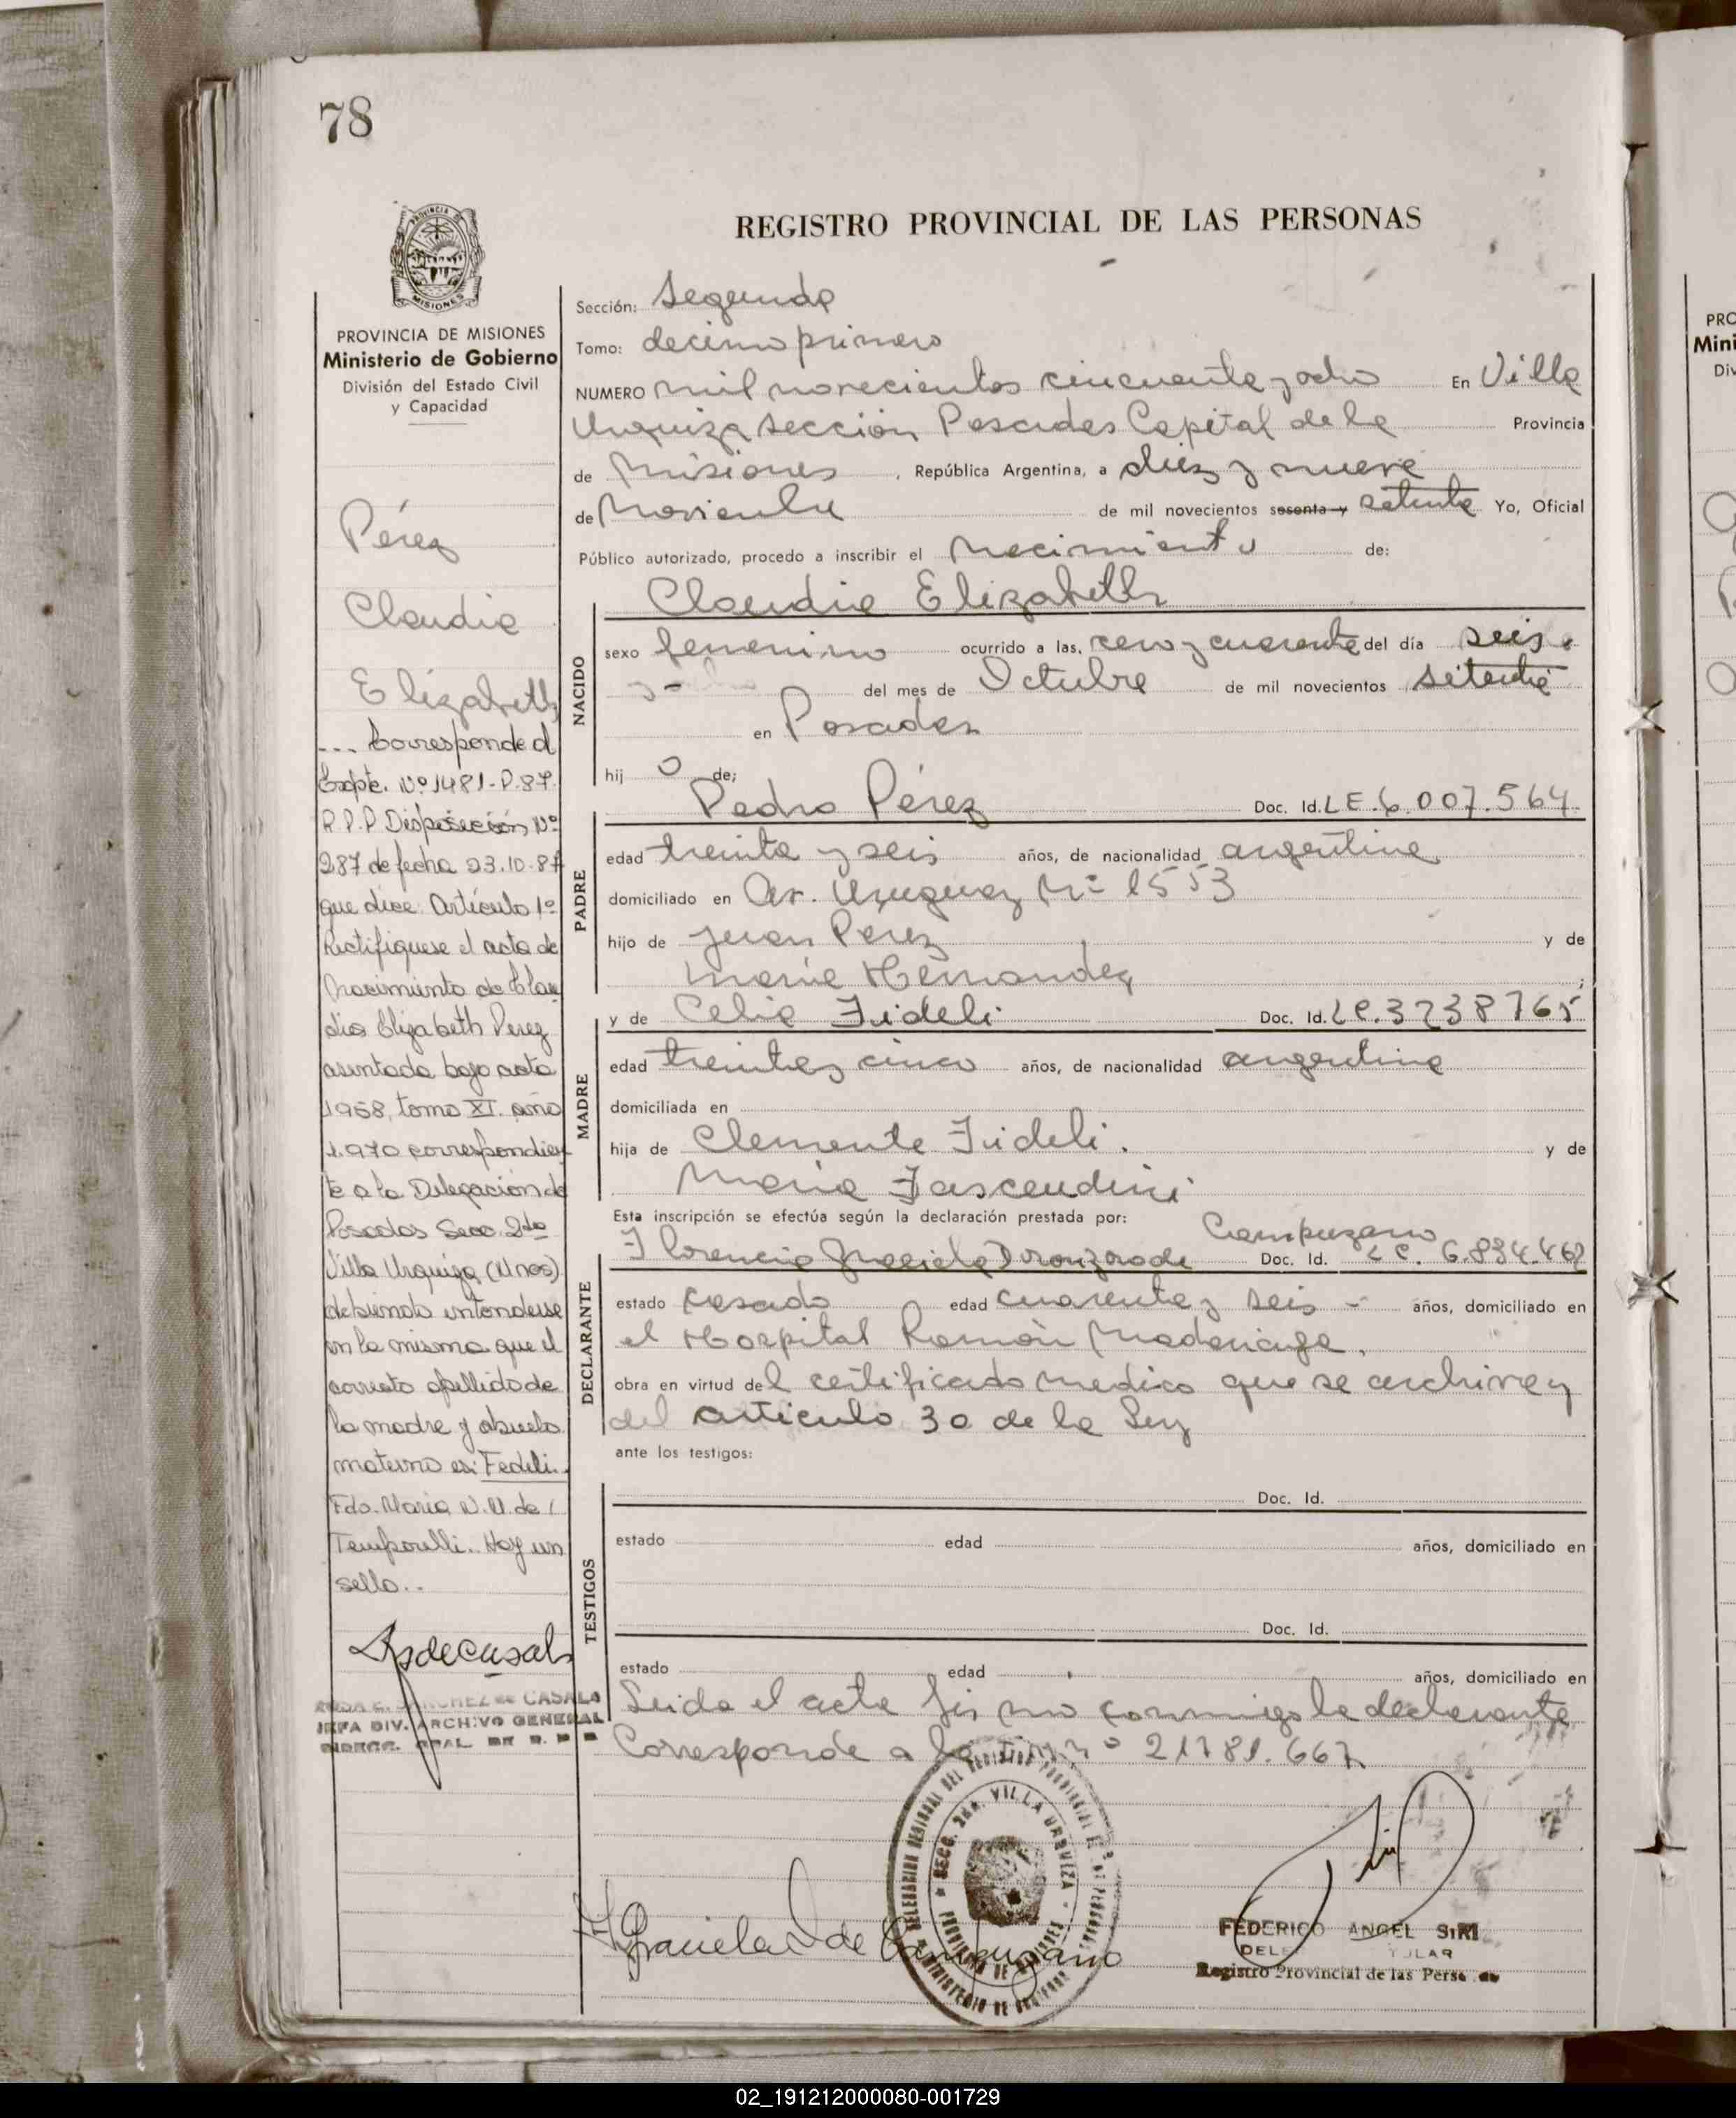 78
REGISTRO PROVINCIAL DE LAS PERSONAS
PROVINCIA DE
MISIONES
PROVINCIA DE MISIONES
Ministerio de Gobierno
División del Estado Civil
y Capacidad
Pérez
Claudia
Elizabeth
... Corresponde al
Expte. Nº 1481-P-87
R.P.P Disposición Nº
287 de fecha 23.10.87
que dice: Artículo 1º
Rectifiquese el acta de
Nacimiento de Clau
dia Elizabeth Perez
asentada bajo acta
1958, tomo XI. año
1.970 correspondien
te a la Delegación de
Posadas Secc. 2da
Villa Urquiza (Mnes)
debiendo entenderse
en la misma que el
correcto apellido de
la madre y abuelo
materno es: Fedeli..
Fdo. María N. M. de
Temporelli.. Hay un
sello..
ROSA E. SANCHEZ de CASALS
JEFA DIV. ARCHIVO GENERAL
DIRECC. GRAL. DE R. P. P.
Sección: Segunda
Tomo: decimo primero
NUMERO mil novecientos cincuenta y ocho En Villa
Urquiza sección Posadas Capital de la Provincia
de Misiones , República Argentina, a diez y nueve
de Noviembre de mil novecientos sesenta y setenta Yo, Oficial
Público autorizado, procedo a inscribir el Nacimiento de:
Claudia Elizabeth
NACIDO
sexo femenino ocurrido a las, cero y cuarenta del día seis
del mes de Octubre de mil novecientos setenta
en Posadas
hij o de;
Pedro Pérez Doc. Id. LE. 6.007.564
PADRE
edad treinta y seis años, de nacionalidad argentina
domiciliado en Av. Uruguay Nº 1553
hijo de Juan Perez y de
María Hernandez ;
y de Celia Fideli Doc. Id. LC. 3238765
MADRE
edad treinta y cinco años, de nacionalidad argentina
domiciliada en
hija de Clemente Fideli. y de
María Fascendini
Esta inscripción se efectúa según la declaración prestada por: Campuzano
Florencia Graciela de Doc. Id. LC. 6.834.462
DECLARANTE
estado casado edad cuarenta y seis - años, domiciliado en
el Hospital Ramón Madariaga.
obra en virtud del certificado medico que se archiva y
del articulo 30 de la Ley
ante los testigos:
TESTIGOS
Doc. Id.
estado edad años, domiciliado en
Doc. Id.
estado edad años, domiciliado en
Leida el acta firmo conmigo la declarante
Corresponde a la nº 21781.667
DELEGACION REGIONAL DEL REGISTRO PROVINCIAL DE LAS PERSONAS
SECC. 2da. VILLA URQUIZA
PROVINCIA DE MISIONES
MINISTERIO DE GOBIERNO
Graciela de Campuzano
FEDERICO ANGEL SIRI
Registro Provincial de las Personas
PRO
Mini
Div
02_191212000080-001729